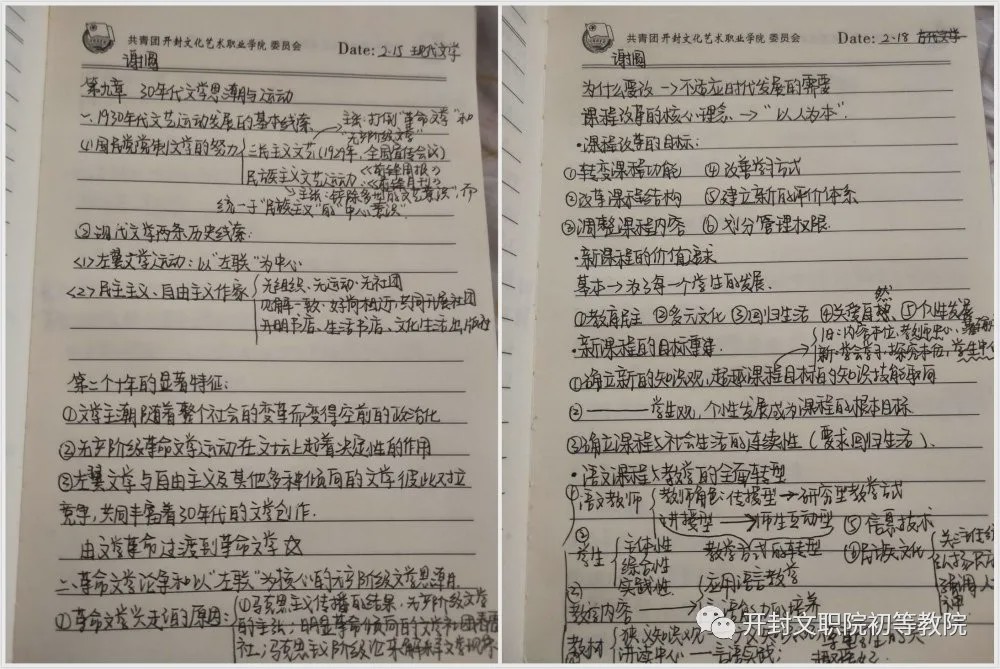 共青团开封文化艺术职业学院 委员会
Date: 2.15 现代文学
谢圆
第九章 30年代文学思潮与运动
一.1930年代文艺运动发展的基本线索
主张:打倒"革命文学"和
"无产阶级文学"
(1)国民党箝制文学的努力
三民主义文艺(1929年,全国宣传会议)
《前锋周报》
民族主义文艺运动:《前锋月刊》
主张:铲除多型的文艺意识,而
统一于"民族主义"的"中心意识".
②现代文学两条历史线索:
<1>左翼文学运动:以"左联"为中心
<2>民主主义、自由主义作家
无组织·无运动·无社团
见解一致·好尚相近·共同开展社团
开明书店、生活书店、文化生活出版社
第二个十年的显著特征:
①文学主潮随着整个社会的变革而变得空前的政治化
②无产阶级革命文学运动在文坛上起着决定性的作用
③左翼文学与自由主义及其他多种倾向的文学彼此对立
竞争,共同丰富着30年代的文学创作.
由文学革命过渡到革命文学☆
二.革命文学论争和以"左联"为核心的无产阶级文学思潮
①革命文学兴起的原因:
①马克思主义传播的结果,无产阶级文学
的主张;明显革命倾向的文学社团春雷
社;马克思主义阶级论来解释文学现象
共青团开封文化艺术职业学院 委员会
Date: 2.18 古代文学
谢圆
为什么要改→不适应时代发展的需要
课程改革的核心理念→"以人为本".
·课程改革的目标:
①转变课程功能 ④改善学习方式
②改革课程结构 ⑤建立新的评价体系
③调整课程内容 ⑥划分管理权限.
·新课程的价值追求
基本→为了每一个学生的发展.
①教育民主 ②多元文化 ③回归生活 ④关爱自然 ⑤个性发展
·新课程的目标重建.
旧:内容本位,教师中心,
新:学会学习,探究本位,学生中心
①确立新的知识观,超越课程目标的知识技能取向
②———学生观,个性发展成为课程的根本目标
③确立课程与社会生活的连续性(要求回归生活).
·语文课程与教学的全面转型
①语文教师
教师角色:传授型→研究型教学方式
讲授型→师生互动型
⑤信息技术
②学生
主体性
综合性
实践性
教学方式的转型
⑥民族文化
教学内容
应用语言教学
教材
狭义知识观
讲读中心→言语实践;
开封文职院初等教院